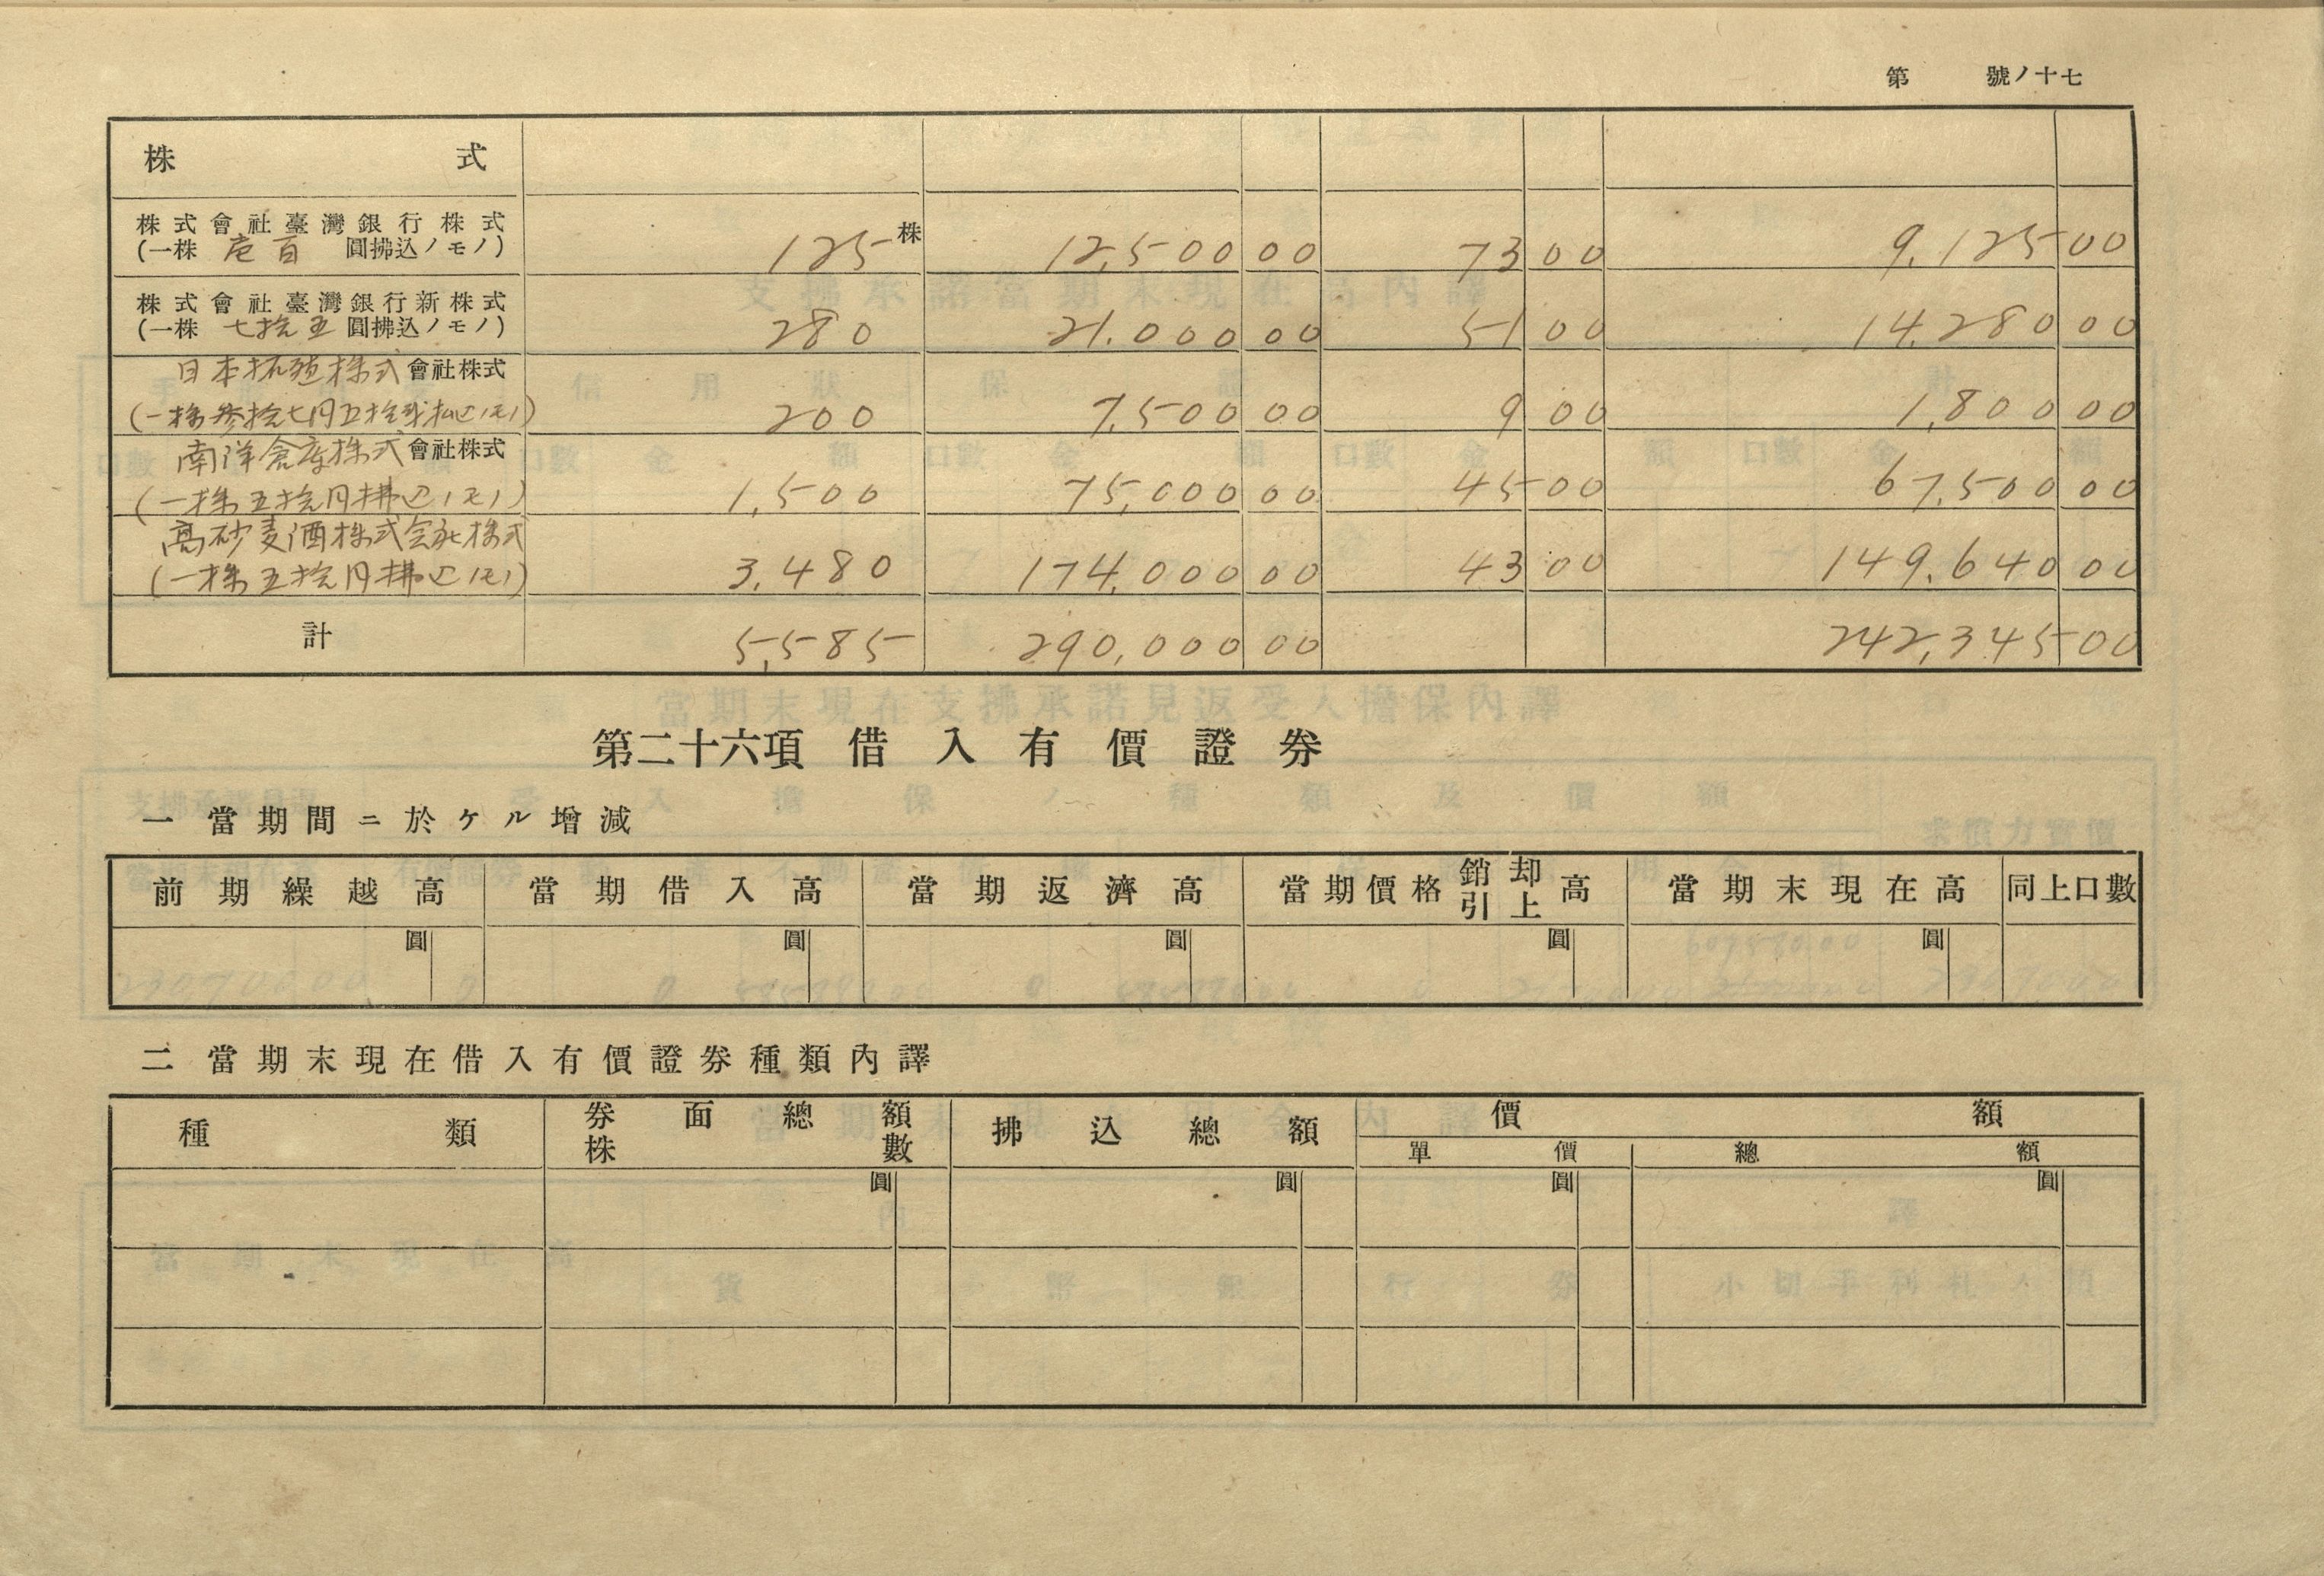 第　號ノ十七
株式
株式會社臺灣銀行株式
(一株 壱百 圓拂込ノモノ) 125株 12,500 00 73 00 9,125 00
株式會社臺灣銀行新株式
(一株 七拾五 圓拂込ノモノ) 280 21,000 00 51 00 14,280 00
日本拓殖株式會社株式
(一株参拾七円五拾銭払込ノモノ) 200 7,500 00 9 00 1,800 00
南洋倉庫株式會社株式
(一株五拾円拂込ノモノ) 1,500 75,000 00 45 00 67,500 00
高砂麦酒株式会社株式
(一株五拾円拂込ノモノ) 3,480 174,000 00 43 00 149,640 00
計 5,585 290,000 00 242,345 00
第二十六項 借入有價證券
一 當期間ニ於ケル增減
前期繰越高 當期借入高 當期返濟高 當期價格銷却引上高 當期末現在高 同上口數
圓 圓 圓 圓 圓
二 當期末現在借入有價證券種類內譯
種類 券面總額 株數 拂込總額 價額
單價 總額
圓 圓 圓 圓